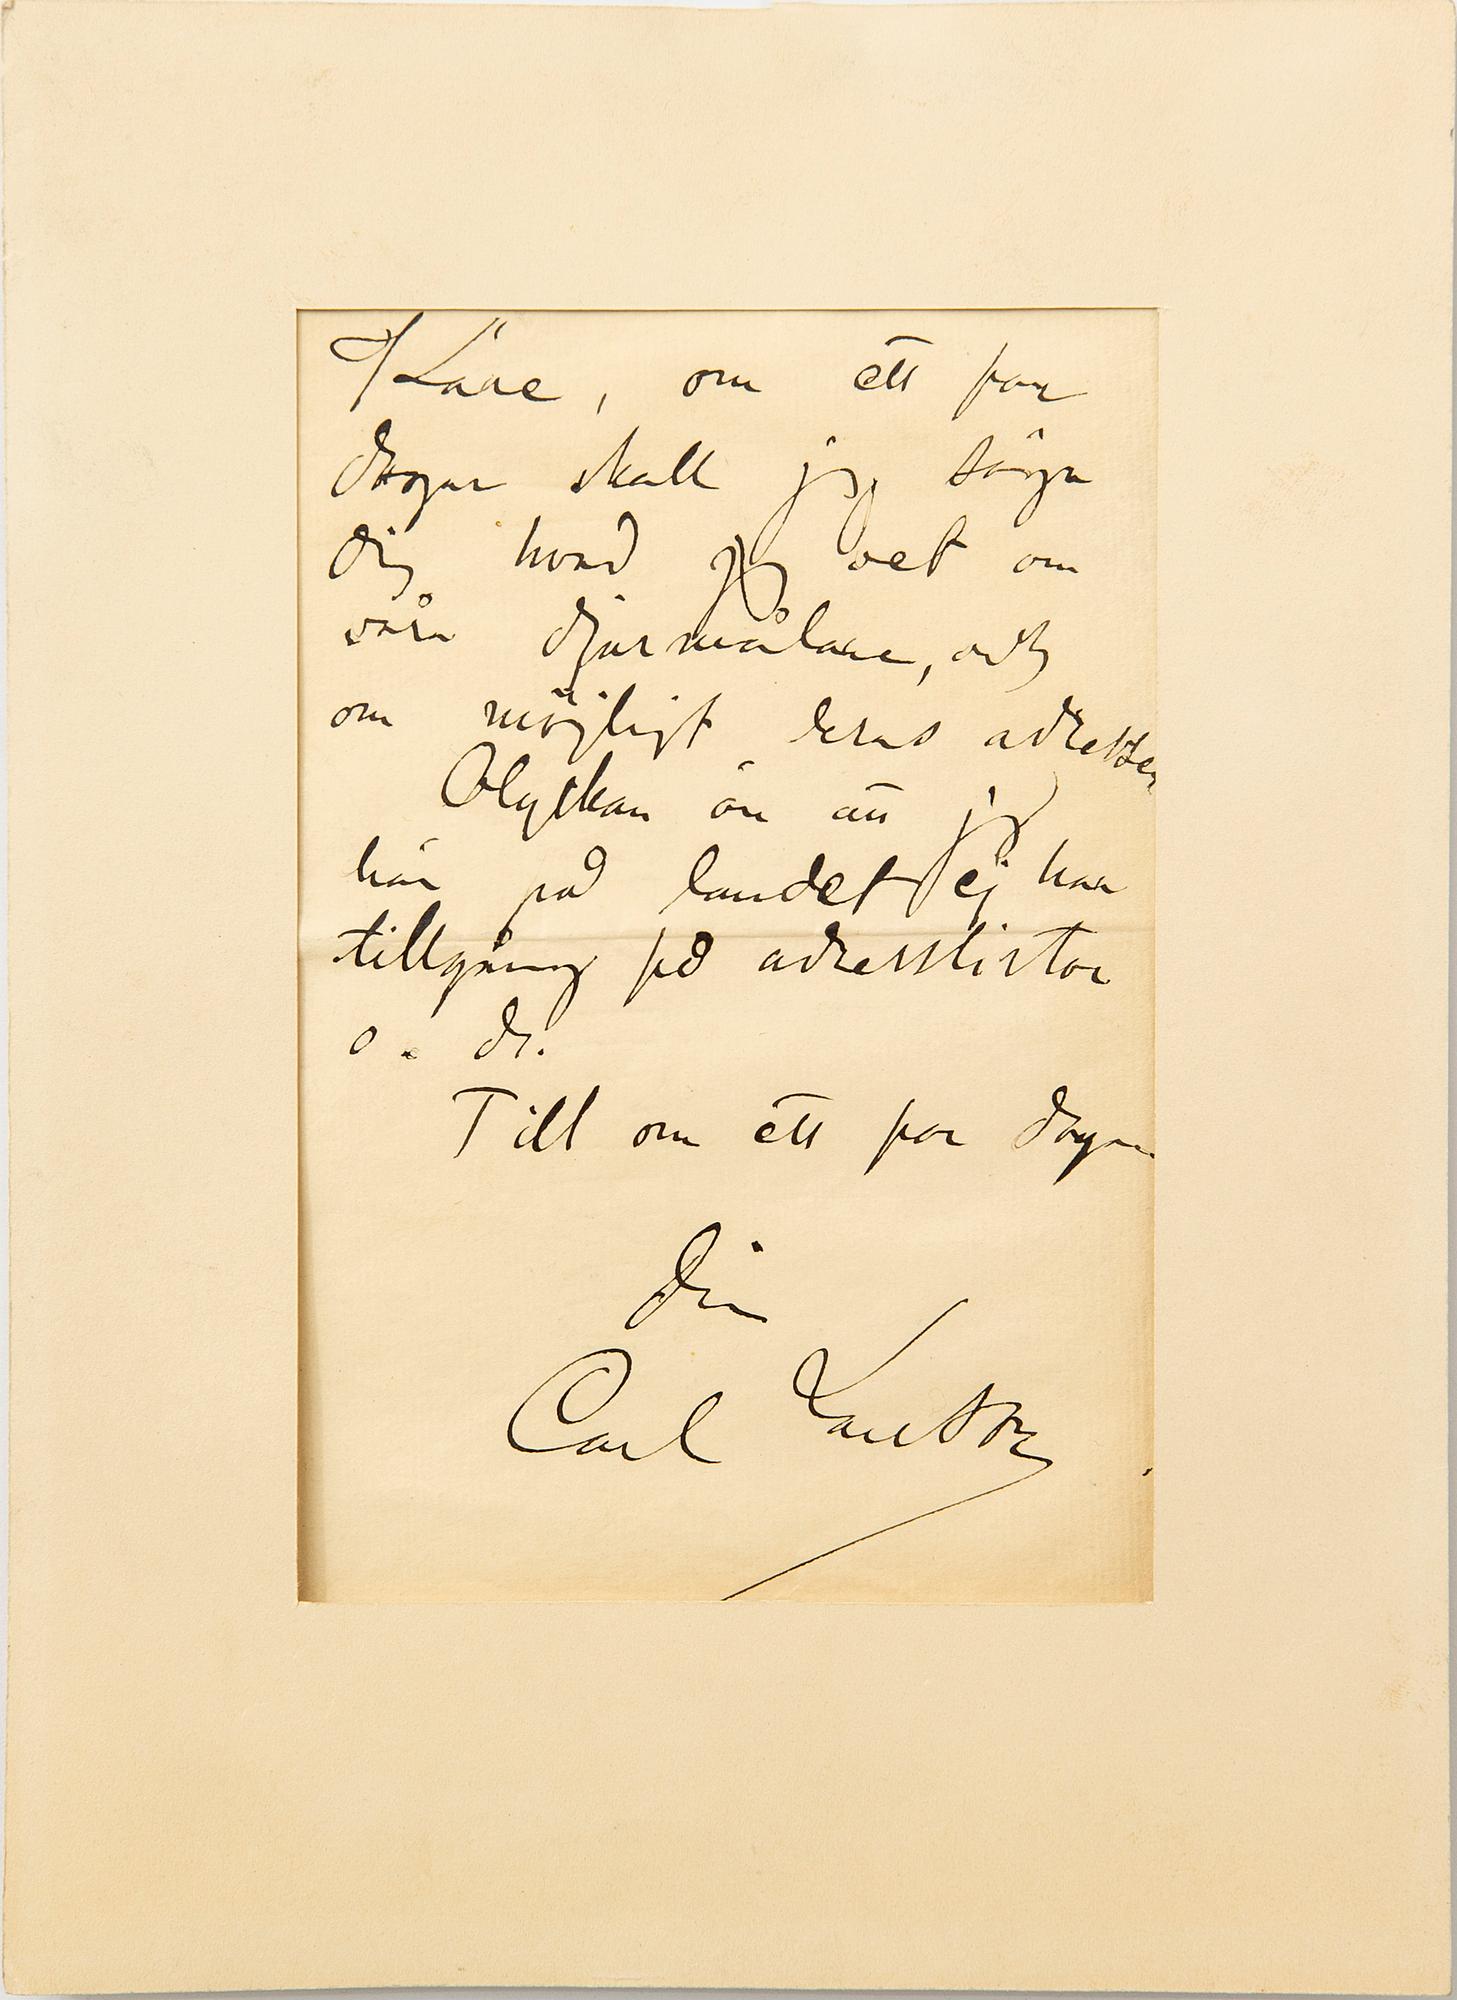 Käre, om ett par
dagar skall jag säga
dig hvad jag vet om
våra djurmålare, och
om möjligt deras adresser
Olyckan är att jag
här på landet ej har
tillgång på adresslistor
o. d.
Till om ett par dagar
Din
Carl Larsson